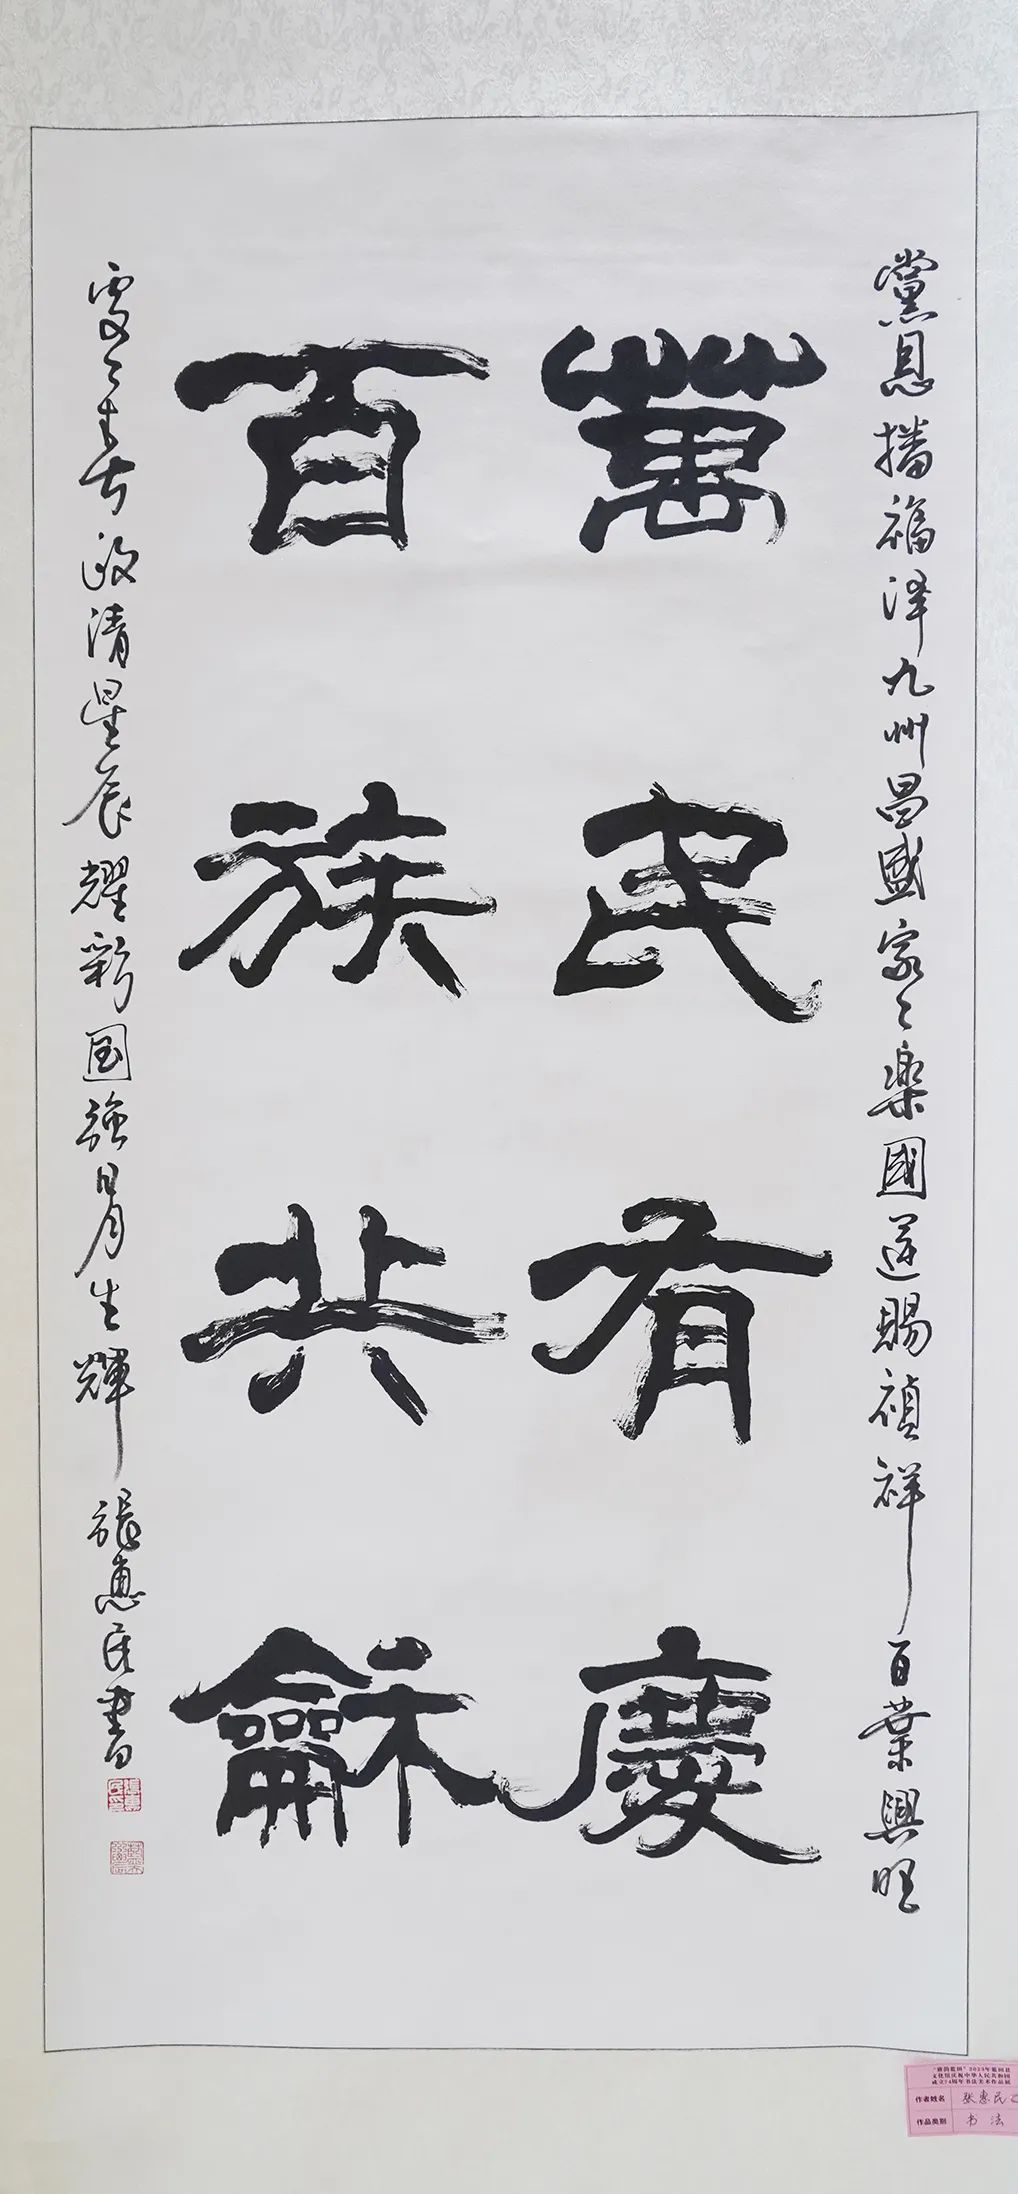 黨恩播福泽九州昌盛家〻樂國運賜禎祥百業興旺
萬民有慶
百族共龢
處〻春政清星辰耀彩国強日月生輝
張惠民書
“雅韵蓝田”2023年蓝田县
文化馆庆祝中华人民共和国
成立74周年书法美术作品展
作者姓名 张惠民
作品类别 书法